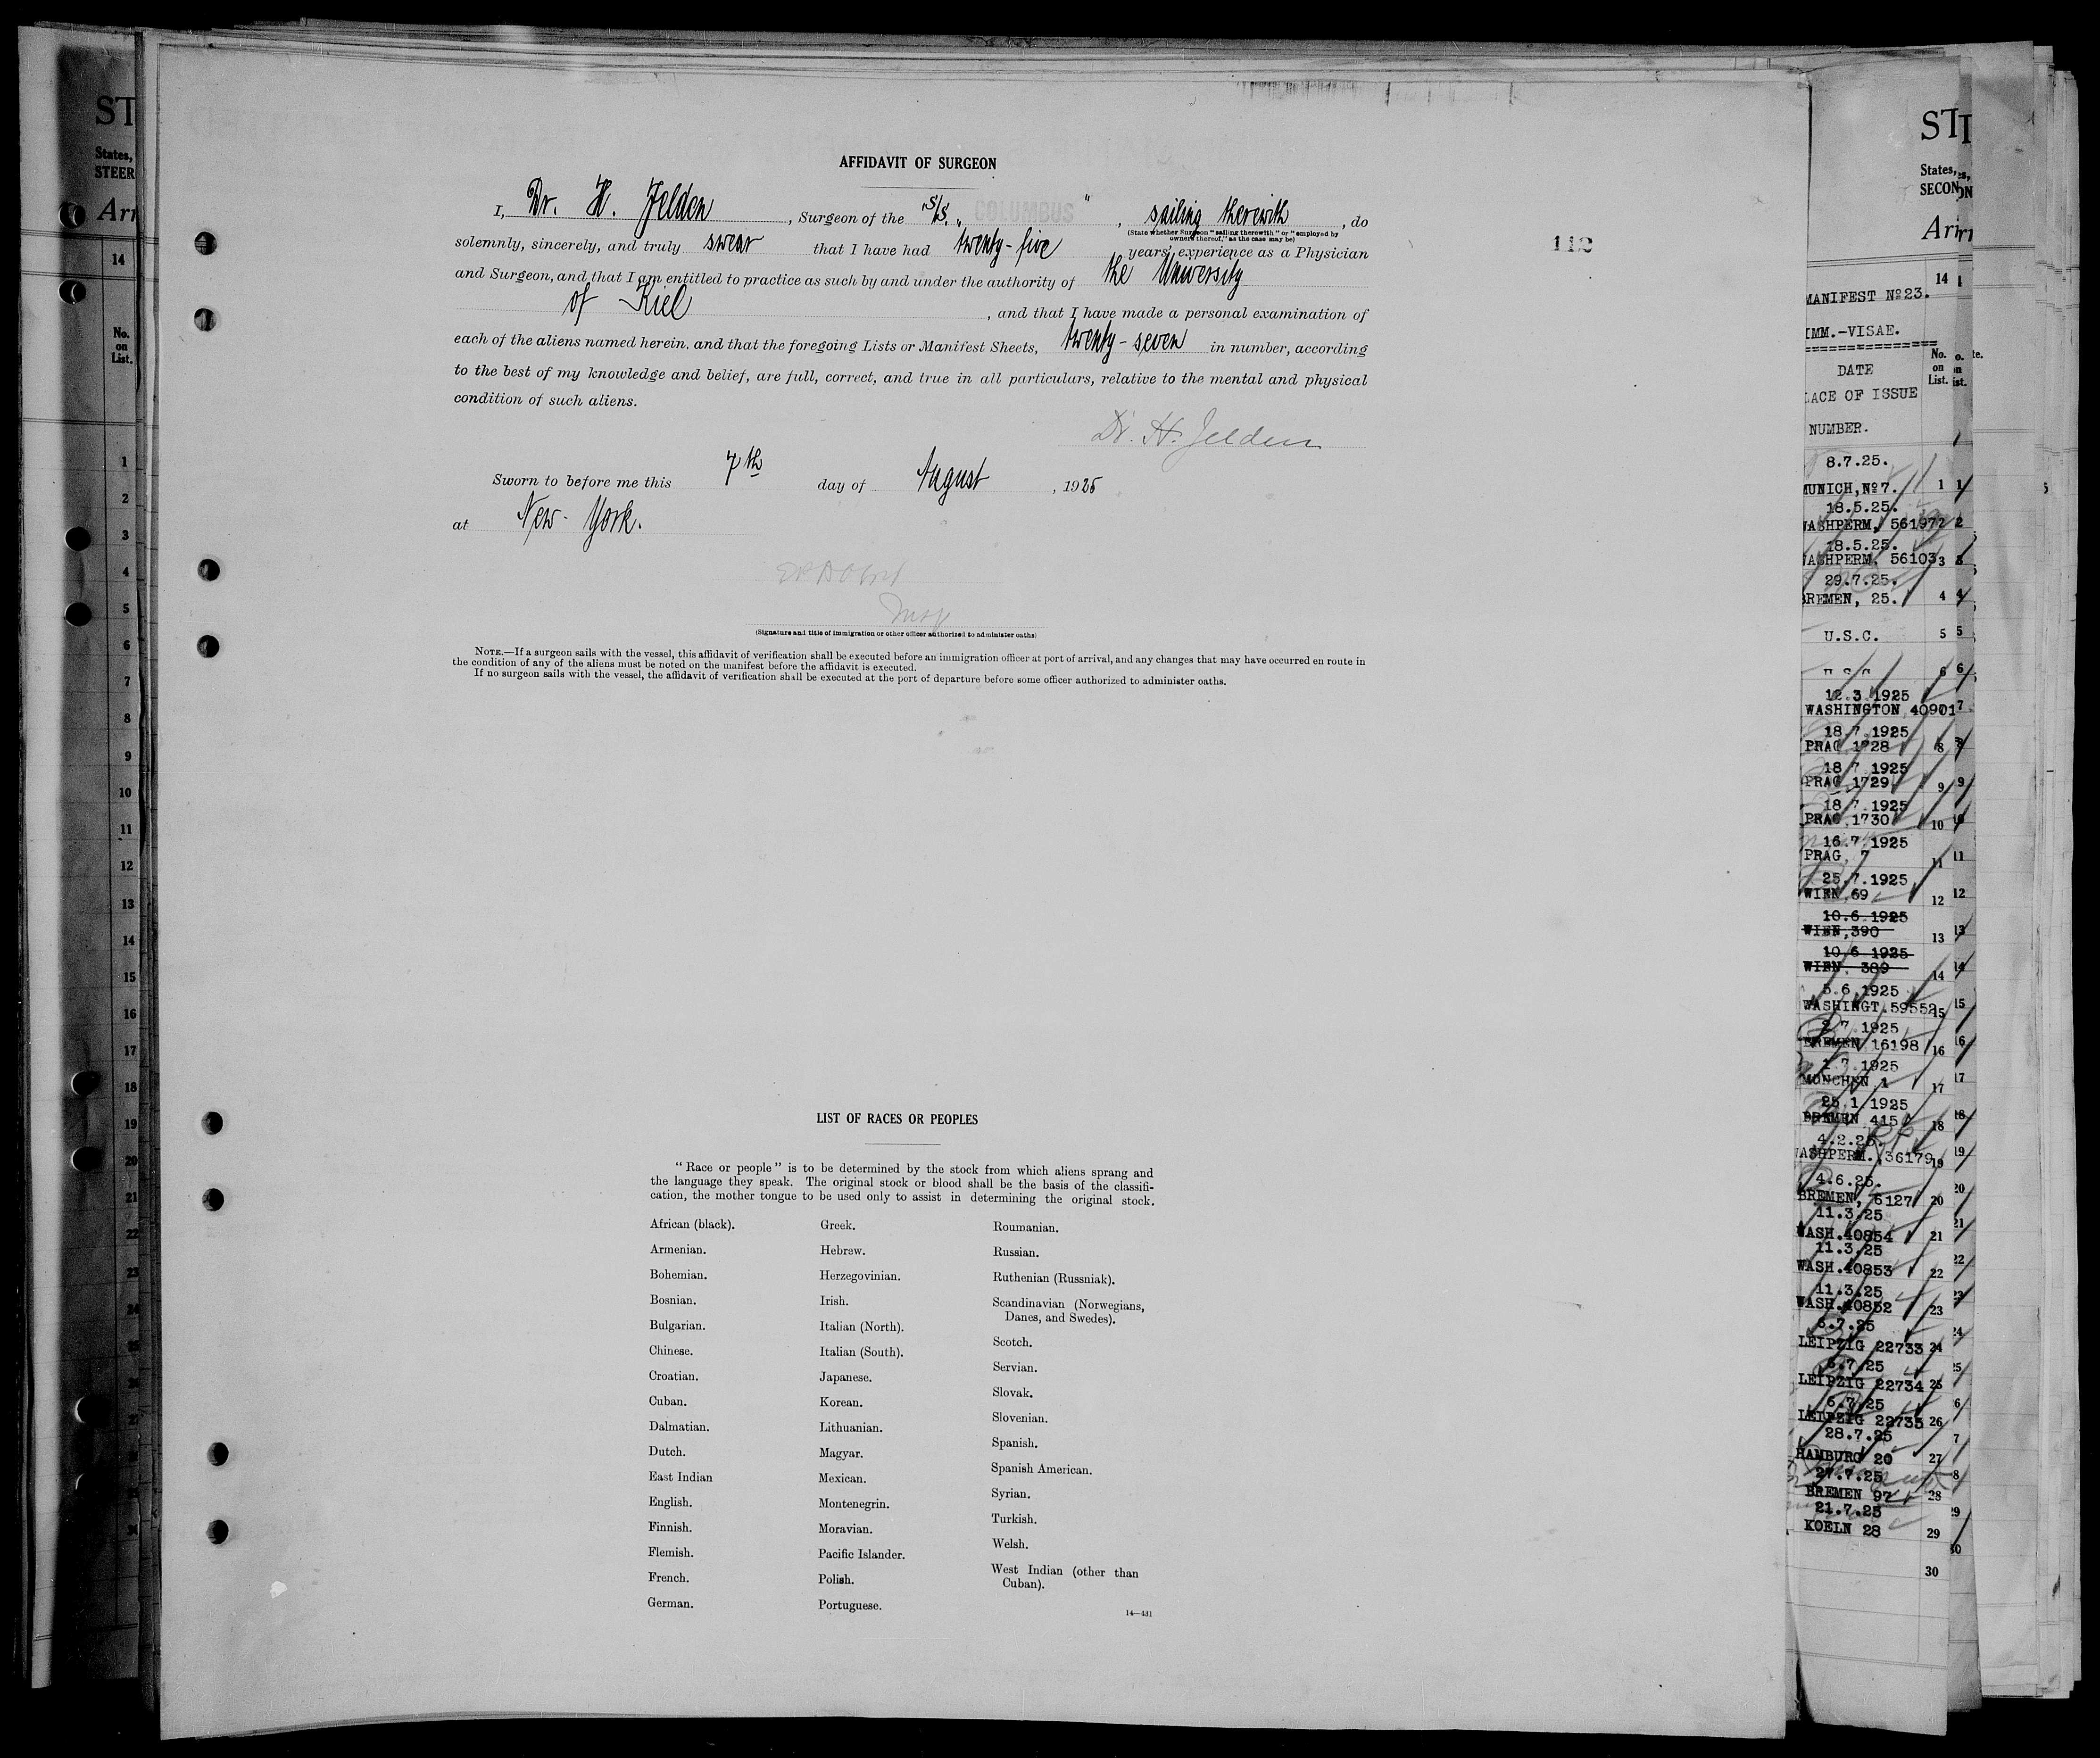 AFFIDAVIT OF SURGEON
I, Dr. H. Jelden, Surgeon of the "S/S. „COLUMBUS", sailing therewith, do
(State whether Surgeon "sailing therewith" or "employed by
owners thereof," as the case may be)
solemnly, sincerely, and truly swear that I have had twenty-five years' experience as a Physician
and Surgeon, and that I am entitled to practice as such by and under the authority of the University
of Kiel, and that I have made a personal examination of
each of the aliens named herein. and that the foregoing Lists or Manifest Sheets, twenty-seven in number, according
to the best of my knowledge and belief, are full, correct, and true in all particulars, relative to the mental and physical
condition of such aliens.
Dr. H. Jelden
Sworn to before me this 7th day of August, 1925
at New-York.
Insp
(Signature and title of immigration or other officer authorized to administer oaths)
NOTE.—If a surgeon sails with the vessel, this affidavit of verification shall be executed before an immigration officer at port of arrival, and any changes that may have occurred en route in
the condition of any of the aliens must be noted on the manifest before the affidavit is executed.
If no surgeon sails with the vessel, the affidavit of verification shall be executed at the port of departure before some officer authorized to administer oaths.
112
LIST OF RACES OR PEOPLES
"Race or people" is to be determined by the stock from which aliens sprang and
the language they speak. The original stock or blood shall be the basis of the classifi-
cation, the mother tongue to be used only to assist in determining the original stock.
African (black).
Armenian.
Bohemian.
Bosnian.
Bulgarian.
Chinese.
Croatian.
Cuban.
Dalmatian.
Dutch.
East Indian
English.
Finnish.
Flemish.
French.
German.
Greek.
Hebrew.
Herzegovinian.
Irish.
Italian (North).
Italian (South).
Japanese.
Korean.
Lithuanian.
Magyar.
Mexican.
Montenegrin.
Moravian.
Pacific Islander.
Polish.
Portuguese.
Roumanian.
Russian.
Ruthenian (Russniak).
Scandinavian (Norwegians,
Danes, and Swedes).
Scotch.
Servian.
Slovak.
Slovenian.
Spanish.
Spanish American.
Syrian.
Turkish.
Welsh.
West Indian (other than
Cuban).
14—431
ST
States,
STEER
Arr
14
No.
on
List.
1
2
3
4
5
6
7
8
9
10
11
12
13
14
15
16
17
18
19
20
21
22
23
24
ST
States,
SECON
Arr
14
MANIFEST Nº23.
IMM.-VISAE.
===============
DATE
LACE OF ISSUE
NUMBER.
No.
on
List.
8.7.25.
MUNICH, Nº7. 1
18.5.25.
WASHPERM. 56197 2
18.5.25.
WASHPERM. 56103 3
29.7.25.
BREMEN, 25. 4
U.S.C. 5
6
12.3.1925
WASHINGTON 40901 7
18.7.1925
PRAG 1728 8
18.7.1925
PRAG 1729 9
18.7.1925
PRAG 1730 10
16.7.1925
PRAG, 7 11
25.7.1925
WIEN 69 12
10.6.1925
WIEN, 390 13
10.6.1925
WIEN. 389 14
5.6.1925
WASHINGT.59552 15
2.7.1925
BREMEN 16198 16
1.7.1925
MÜNCHEN 1 17
25.1.1925
BREMEN 415 18
4.2.25.
WASHPERM. 36179 19
4.6.25.
BREMEN, 6127 20
11.3.25
WASH.40854 21
11.3.25
WASH.40853 22
11.3.25
WASH.40852 23
6.7.25
LEIPZIG 22733 24
6.7.25
LEIPZIG 22734 25
6.7.25
LEIPZIG 22735 26
28.7.25
HAMBURG 20 27
27.7.25
BREMEN 97 28
21.7.25
KOELN 28 29
30